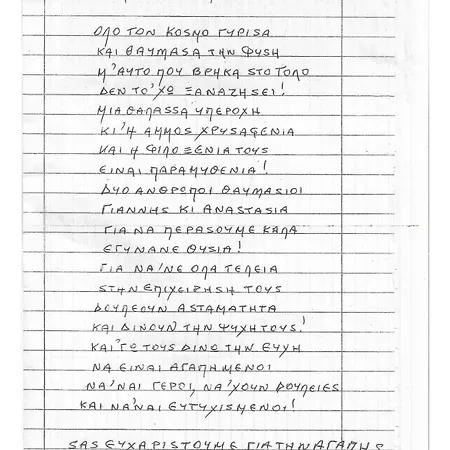 ΟΛΟ ΤΟΝ ΚΟSΜΟ ΓΥΡΙSΑ
ΚΑΙ ΘΑΥΜΑSΑ ΤΗΝ ΦΥSΗ
Μ'ΑΥΤΟ ΠΟΥ ΒΡΗΚΑ SΤΟ ΤΟΛΟ
ΔΕΝ ΤΟ'ΧΩ ΞΑΝΑΖΗSΕΙ!
ΜΙΑ ΘΑΛΑSSΑ ΥΠΕΡΟΧΗ
ΚΙ'Η ΑΜΜΟS ΧΡΥSΑΦΕΝΙΑ
ΚΑΙ Η ΦΙΛΟΞΕΝΙΑ ΤΟΥS
ΕΙΝΑΙ ΠΑΡΑΜΥΘΕΝΙΑ!
ΔΥΟ ΑΝΘΡΩΠΟΙ ΘΑΥΜΑSΙΟΙ
ΓΙΑΝΝΗS ΚΙ ΑΝΑSΤΑSΙΑ
ΓΙΑ ΝΑ ΠΕΡΑSΟΥΜΕ ΚΑΛΑ
ΕΓΥΝΑΝΕ ΘΥSΙΑ!
ΓΙΑ ΝΑ'ΝΕ ΟΛΑ ΤΕΛΕΙΑ
SΤΗΝ ΕΠΙΧΕΙΡΗSΗ ΤΟΥS
ΔΟΥΛΕΟΥΝ ΑSΤΑΜΑΤΗΤΑ
ΚΑΙ ΔΙΝΟΥΝ ΤΗΝ ΨΥΧΗ ΤΟΥS!
ΚΑΙ'ΓΩ ΤΟΥS ΔΙΝΩ ΤΗΝ ΕΥΧΗ
ΝΑ ΕΙΝΑΙ ΑΓΑΠΗΜΕΝΟΙ
ΝΑ'ΝΑΙ ΓΕΡΟΙ, ΝΑ'ΧΟΥΝ ΔΟΥΛΕΙΕS
ΚΑΙ ΝΑ'ΝΑΙ ΕΥΤΥΧΙSΜΕΝΟΙ!
SΑS ΕΥΧΑΡΙSΤΟΥΜΕ ΓΙΑ ΤΗΝ ΑΓΑΠΗ S